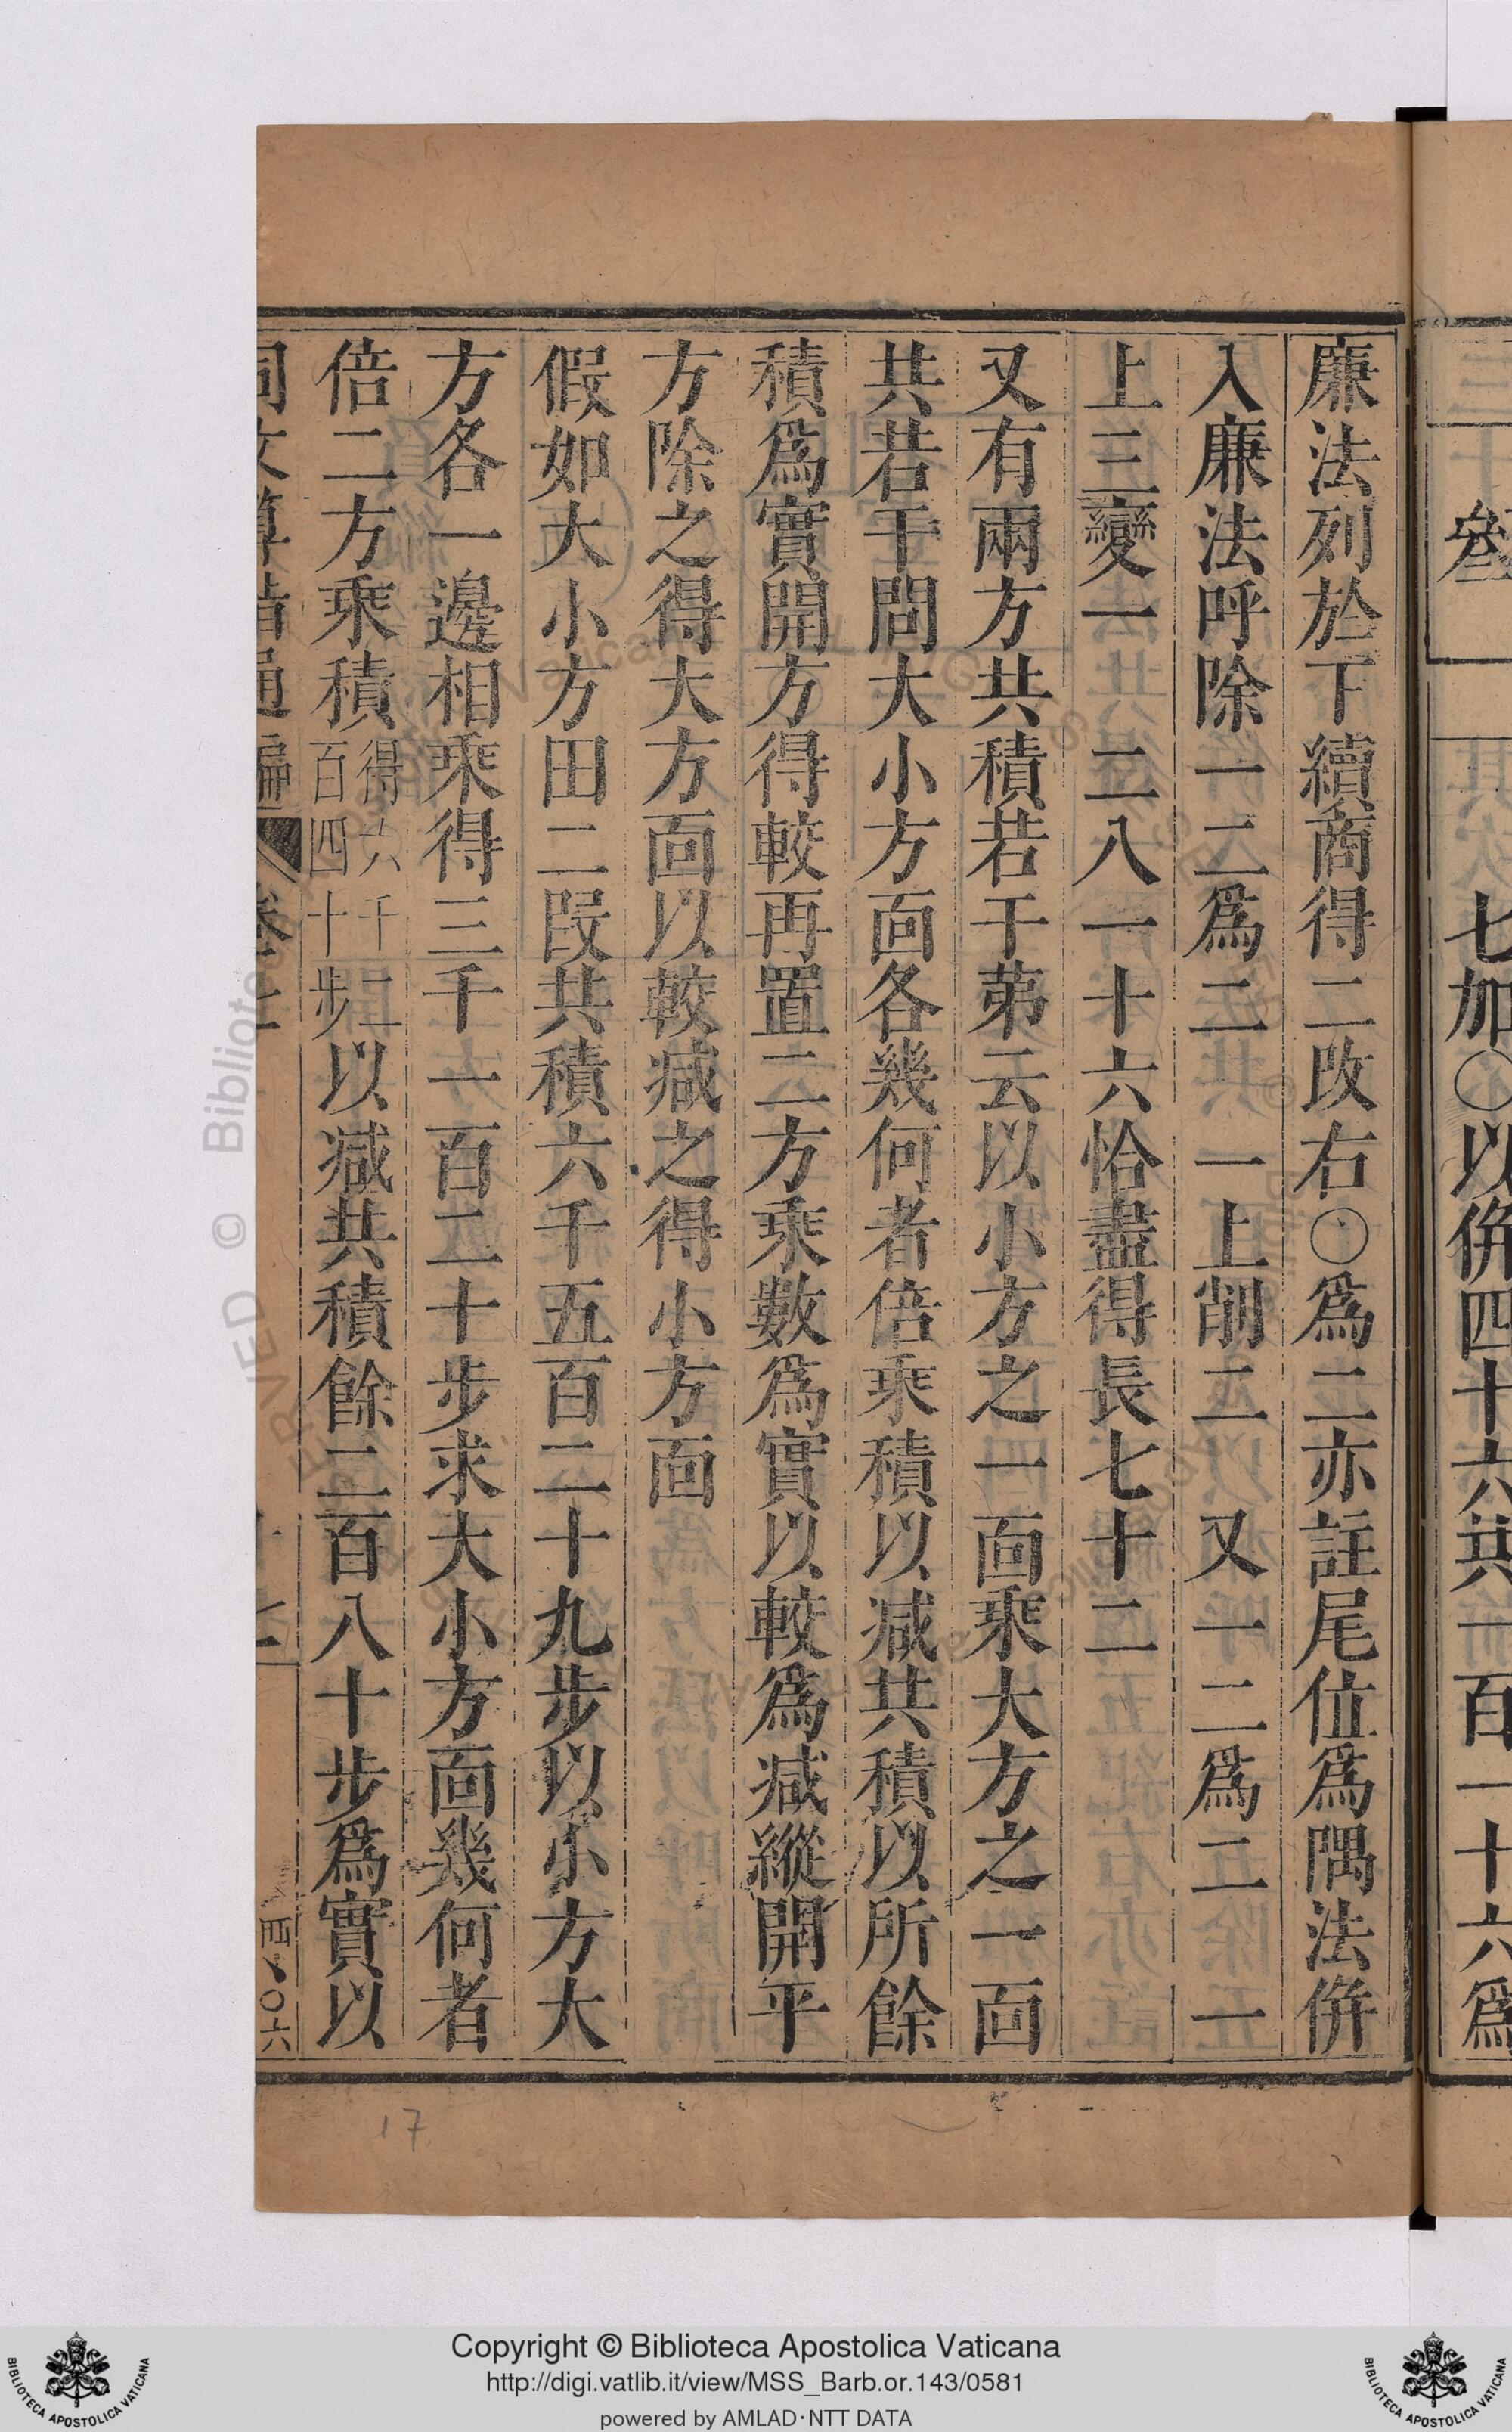 廉法列於下續商得二改右〇爲二亦註尾位爲隅法併
入廉法呼除一二爲二一上削二又一二爲二一
上三變一二八一十六恰盡得長七十二
又有兩方共積若干第云以小方之一面乘大方之一面
共若干問大小方面各幾何者倍乘積以减共積以所餘
積爲實開方得較再置二方乘數爲實以較爲减縱開平
方除之得大方面以較减之得小方面
假如大小方田二段共積六千五百二十九步以小方大
方各一邊相乘得三千一百二十步求大小方面幾何者
倍二方乘積得六千二百四十步以减共積餘二百八十步爲實以
同文算指通編 卷七 十七
七加〇以併四十六共一百一十六爲
Copyright © Biblioteca Apostolica Vaticana
http://digi.vatlib.it/view/MSS_Barb.or.143/0581
powered by AMLAD·NTT DATA
BIBLIOTECA APOSTOLICA VATICANA
BIBLIOTECA APOSTOLICA VATICANA
17